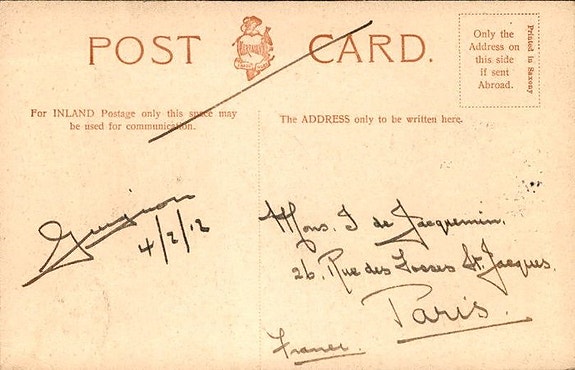 POST CARD.
Only the
Address on
this side
if sent
Abroad.
Printed in Saxony
For INLAND Postage only this space may
be used for communication.
The ADDRESS only to be written here.
4/2/12
Mons. J de Jacquemin,
26. Rue des Fosses St. Jacques.
Paris.
France.